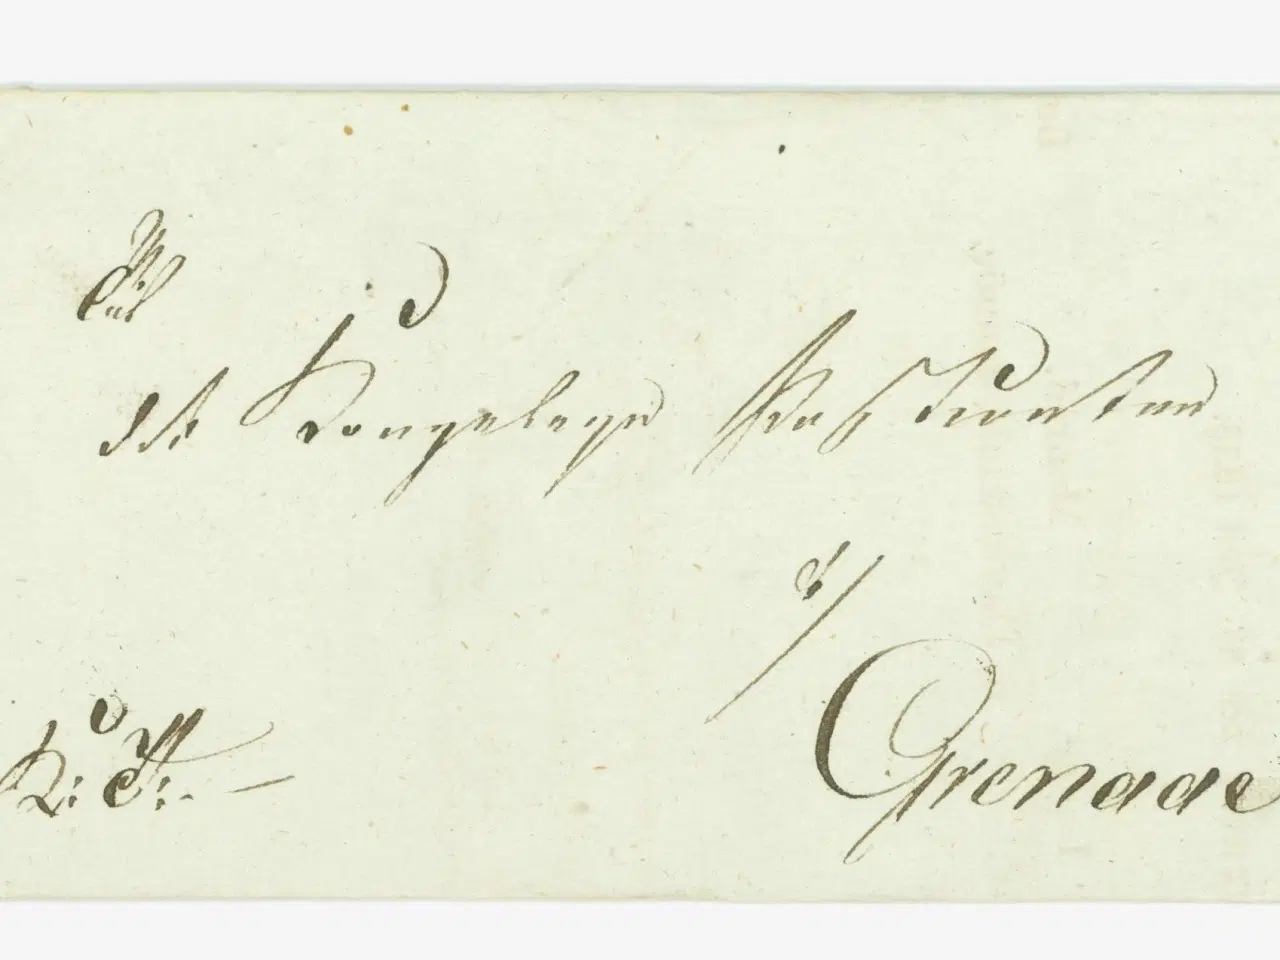 Til
det Kongelege Post Contor
i/
Grenaae
K: T: